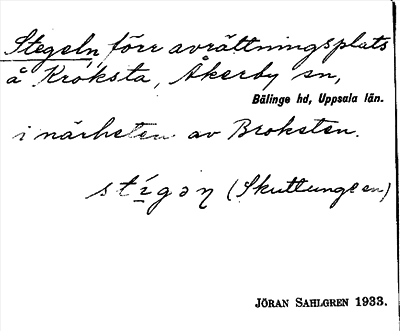 Stegeln, förr avrättningsplats
å Kroksta, Åkerby sn,
Bälinge hd, Uppsala län.
i närheten av Broksten.
stígən (Skuttunge sn)
JÖRAN SAHLGREN 1933.